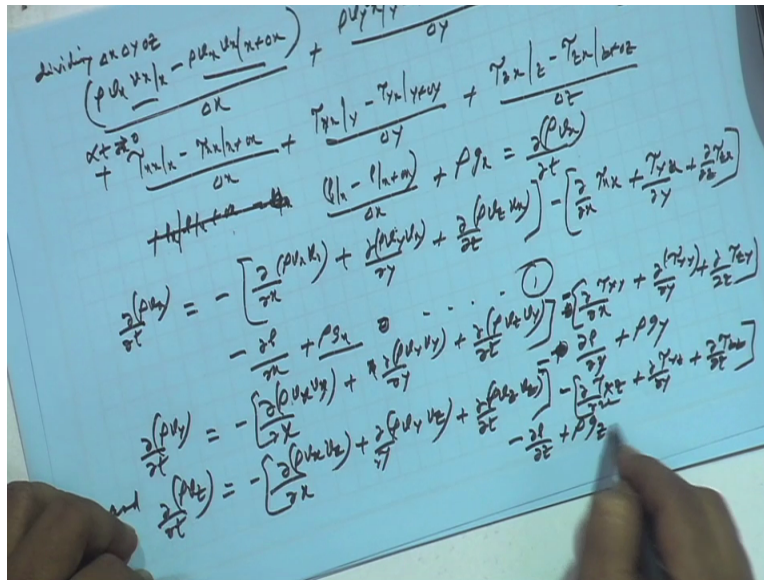 dividing Δx Δy Δz
(ρvₓ vₓ|x − ρvₓ vₓ|x+Δx)/Δx + ρv_y vₓ|y /Δy
+ (τxx|x − τxx|x+Δx)/Δx + (τyx|y − τyx|y+Δy)/Δy + (τzx|z − τzx|z+Δz)/Δz
(p|x − p|x+Δx)/Δx + ρgₓ = ∂(ρvₓ)/∂t
∂(ρvₓ)/∂t = −[∂(ρvₓvₓ)/∂x + ∂(ρv_y vₓ)/∂y + ∂(ρv_z vₓ)/∂z] − [∂/∂x τxx + τyx/∂y + ∂/∂z τzx]
− ∂p/∂x + ρgₓ . . . . . ①
∂(ρv_y)/∂t = −[∂(ρvₓv_y)/∂x + ∂(ρv_y v_y)/∂y + ∂(ρv_z v_y)/∂z] − [∂τxy/∂x + ∂(τyy)/∂y + ∂/∂z τzy]
− ∂p/∂y + ρg_y
and ∂(ρv_z)/∂t = −[∂(ρvₓv_z)/∂x + ∂(ρv_y v_z)/∂y + ∂(ρv_z v_z)/∂z] − [∂τxz/∂x + ∂τyz/∂y + ∂τzz/∂z]
− ∂p/∂z + ρg_z